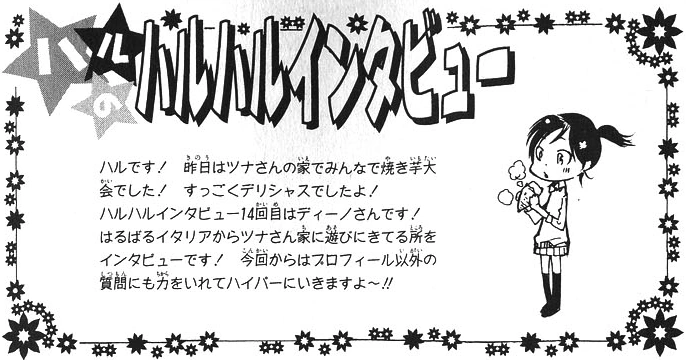 ハルの
ハルハルインタビュー
ハルです！ 昨日はツナさんの家でみんなで焼き芋大
会でした！ すっごくデリシャスでしたよ！
ハルハルインタビュー14回目はディーノさんです！
はるばるイタリアからツナさん家に遊びにきてる所を
インタビューです！ 今回からはプロフィール以外の
質問にも力をいれてハイパーにいきますよ～!!